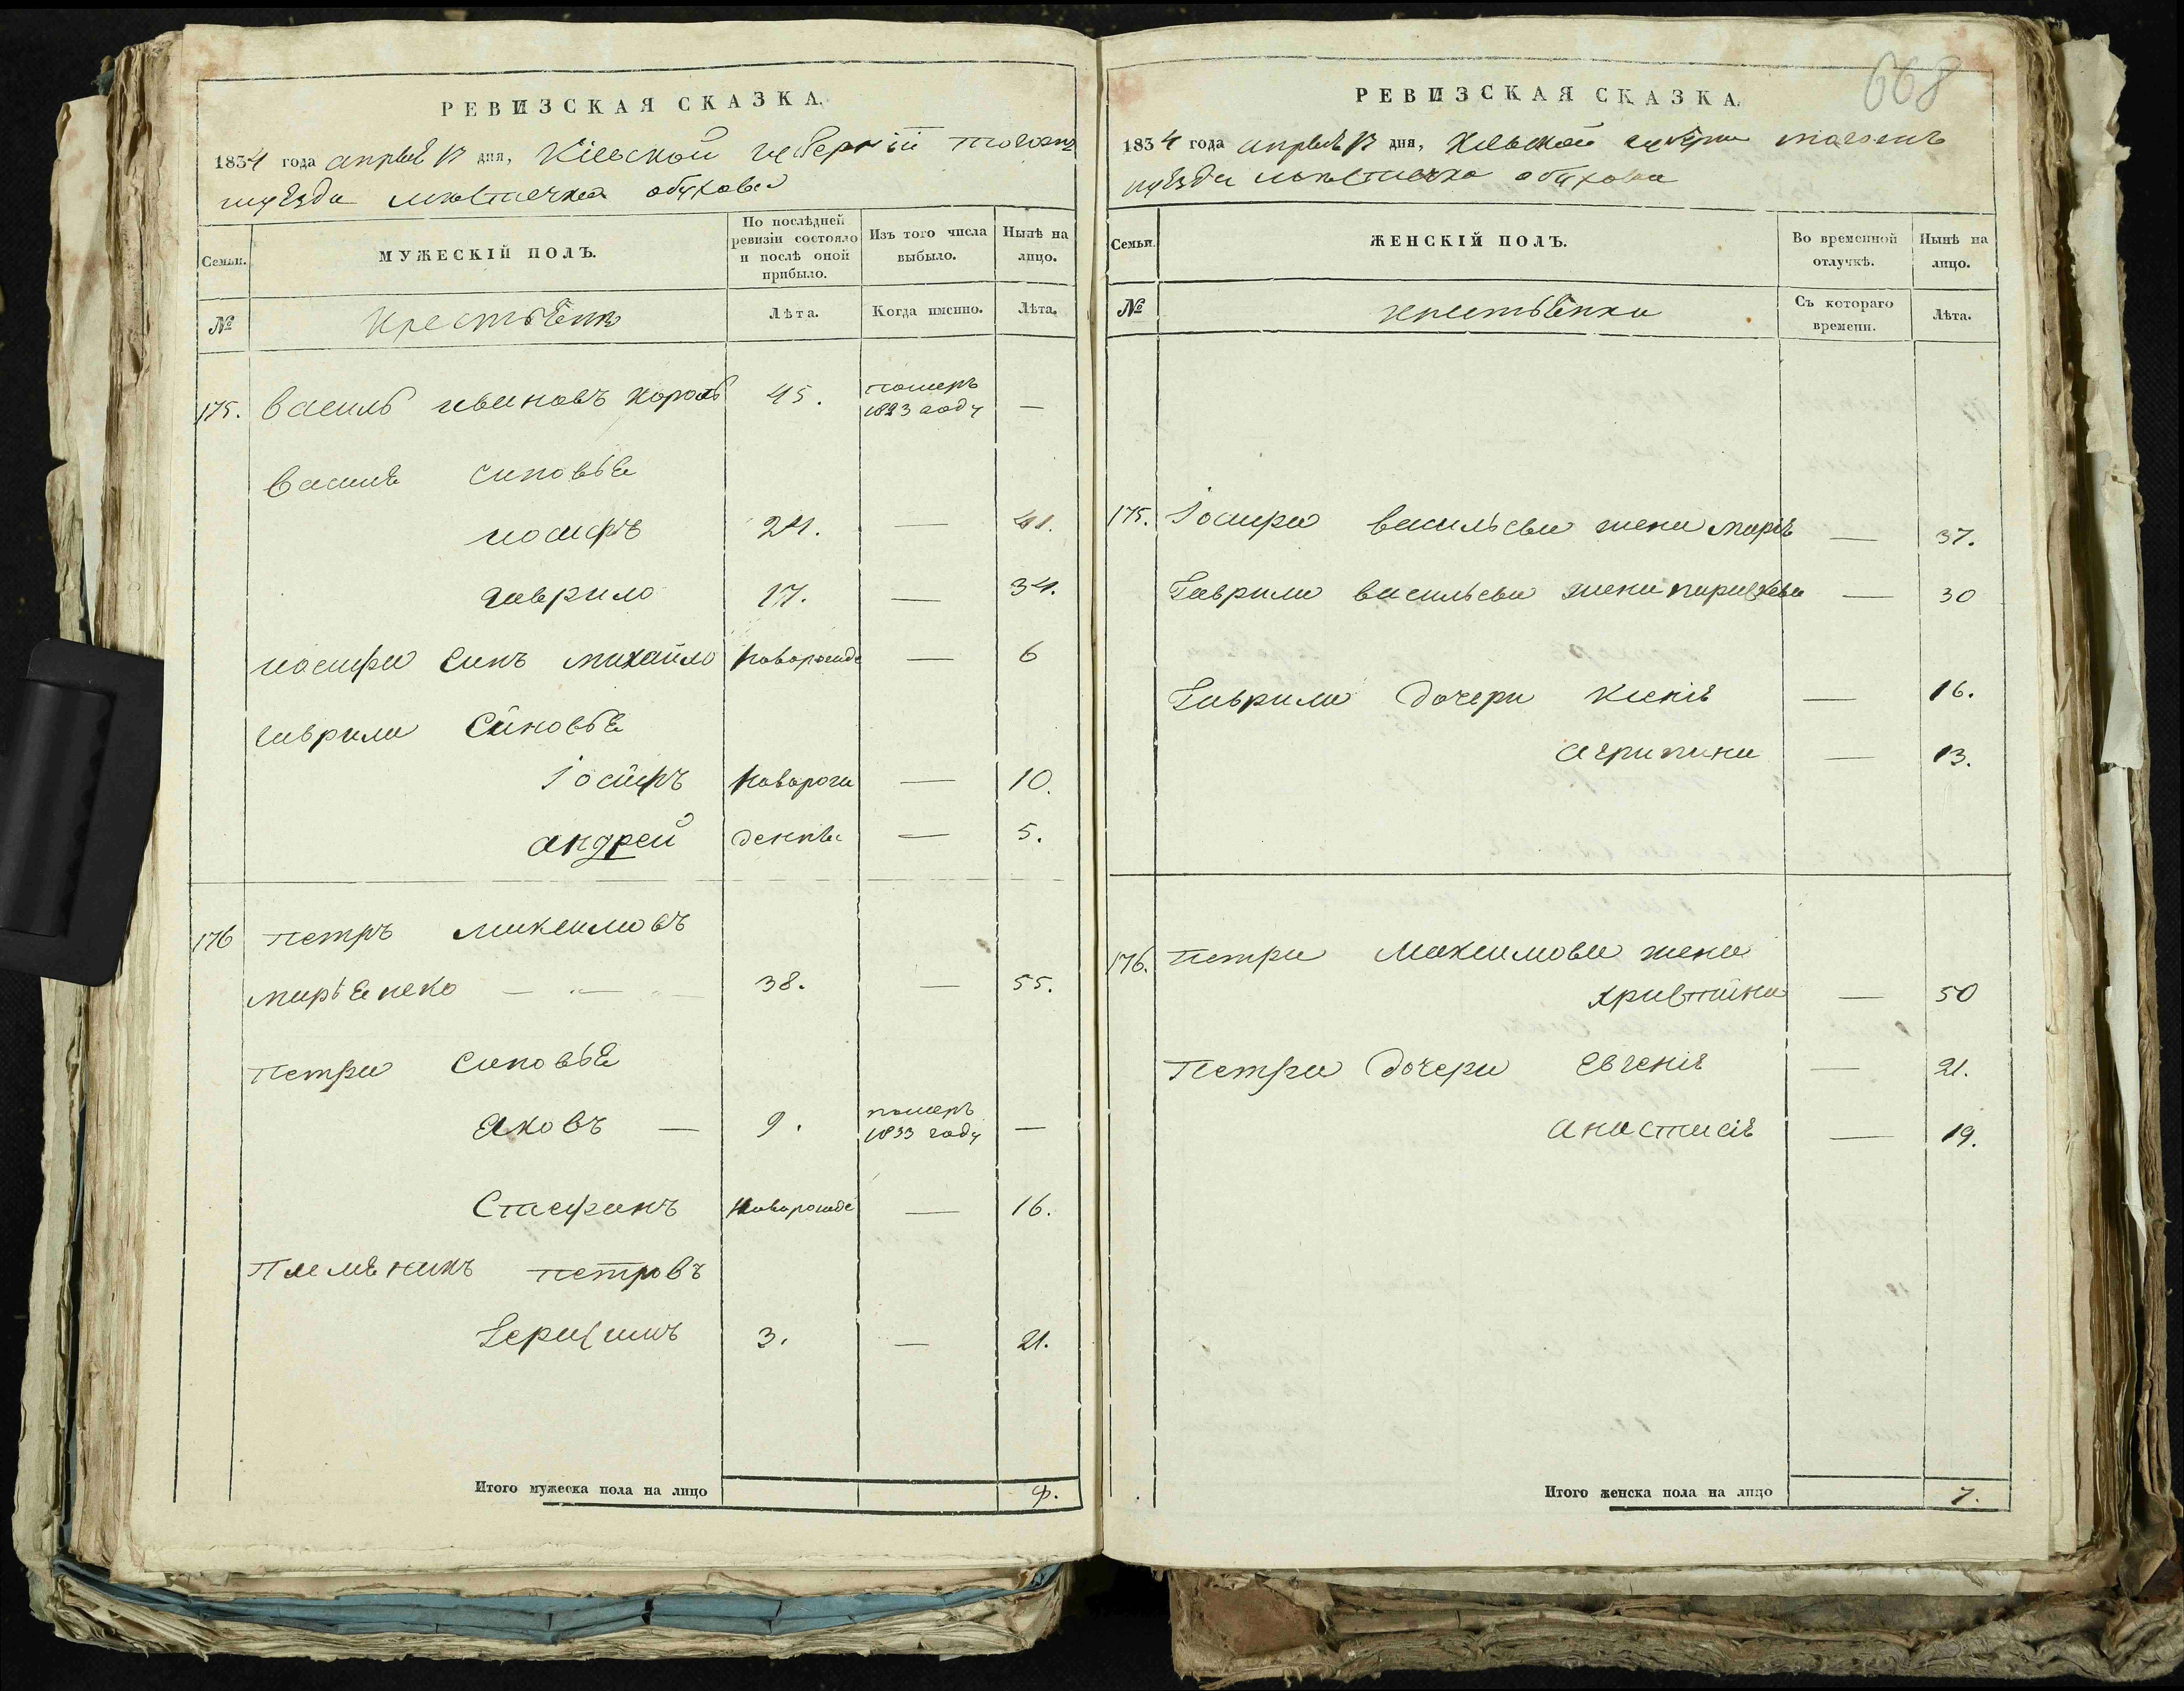 РЕВИЗСКАЯ СКАЗКА.
1834 года апреля 17 дня, Кіевской губерніи
уѣзда мѣстечка обухова
Семьи.
МУЖЕСКІЙ ПОЛЪ.
По послѣдней ревизіи состояло и послѣ оной прибыло.
Изъ того числа выбыло.
Нынѣ на лицо.
№
Крестьѣне
Лѣта.
Когда именно.
Лѣта.
175. василь ивановъ король 45. померъ 1823 году —
василя синовье
иосифъ 24. — 41.
гаврило 17. — 34.
иосифа синъ михайло новорожде — 6
гаврила синовье
Іосифъ новорож — 10.
андрей денные — 5.
176 петръ максимовъ
мирьенеко 38. — 55.
петра синовье
яковъ — 9. померъ 1833 году —
Стефанъ новорожде — 16.
племеникъ петровъ
Герасимъ 3. — 21.
Итого мужеска пола на лицо 9.
668
РЕВИЗСКАЯ СКАЗКА.
1834 года апреля 17 дня, Кіевской
уѣзда мѣстечка обухова
Семьи.
ЖЕНСКІЙ ПОЛЪ.
Во временной отлучкѣ.
Нынѣ на лицо.
№
крестьѣнки
Съ котораго времени.
Лѣта.
175. Іосифа васильева жена марія — 37.
Гаврила васильева жена параскева — 30
Гаврила дочери Ксенія — 16.
агрипина — 13.
176. петра Максимова жена
христина — 50
петра дочери евгенія — 21.
анастасія — 19.
Итого женска пола на лицо 7.